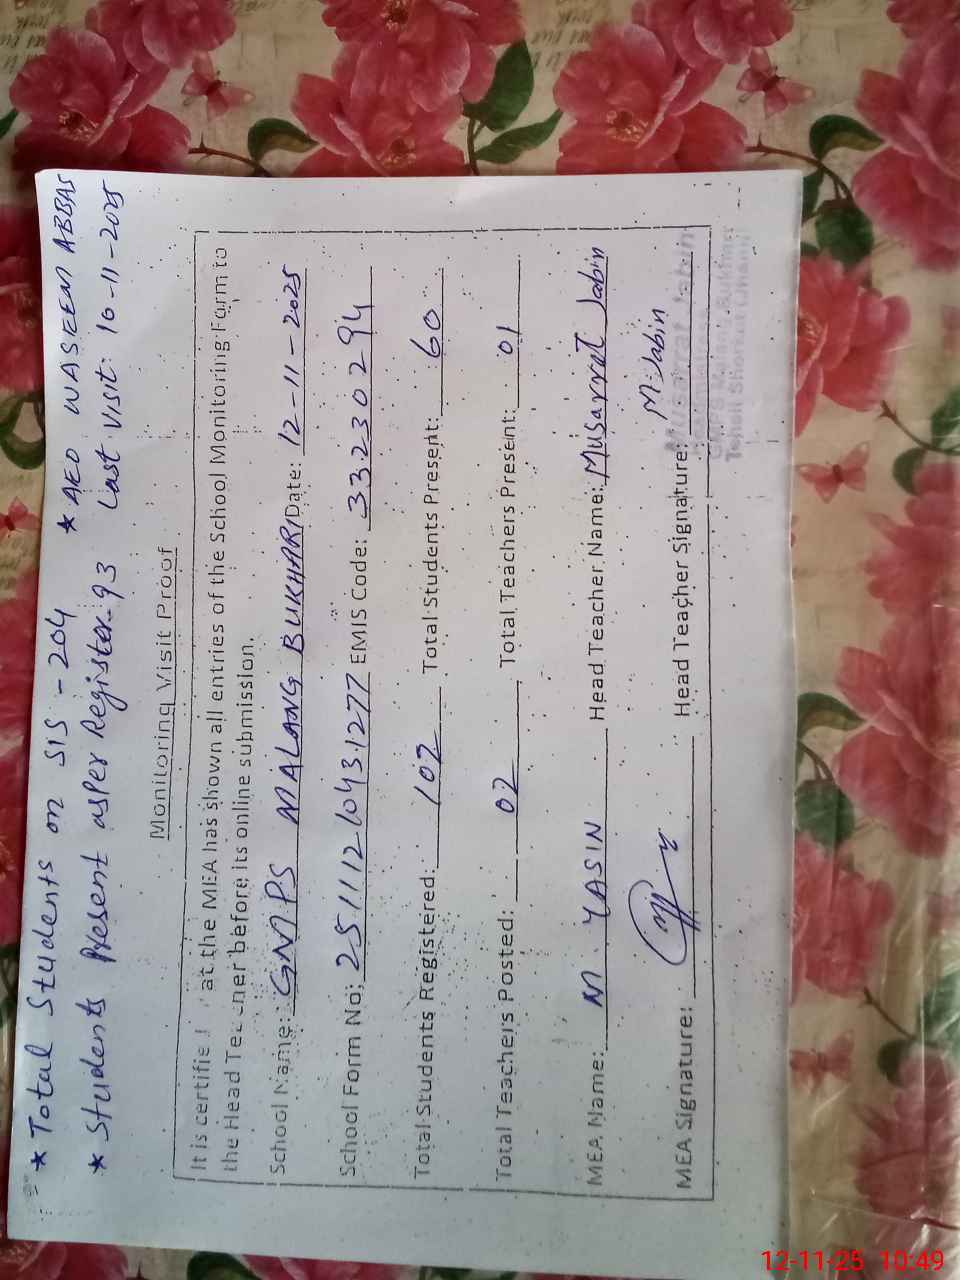 * Total Students on SIS - 204 * AEO WASEEM ABBAS
* Students Present as per Register - 93 Last Visit: 10-11-2025
Monitoring Visit Proof
It is certified at the MEA has shown all entries of the School Monitoring Form to
the Head Teacher before its online submission.
School Name: GMPS MALANG BUKHARI Date: 12-11-2025
School Form No: 25111210431277 EMIS Code: 33230294
Total Students Registered: 102 Total Students Present: 60
Total Teachers Posted: 02 Total Teachers Present: 01
MEA Name: M. YASIN Head Teacher Name: Musarrat Jabin
MEA Signature: Head Teacher Signature: M. Jabin
Musarrat Jabin
GMPS Malang Bukhari
Tehsil Shorkot (Jhang)
12-11-25 10:49